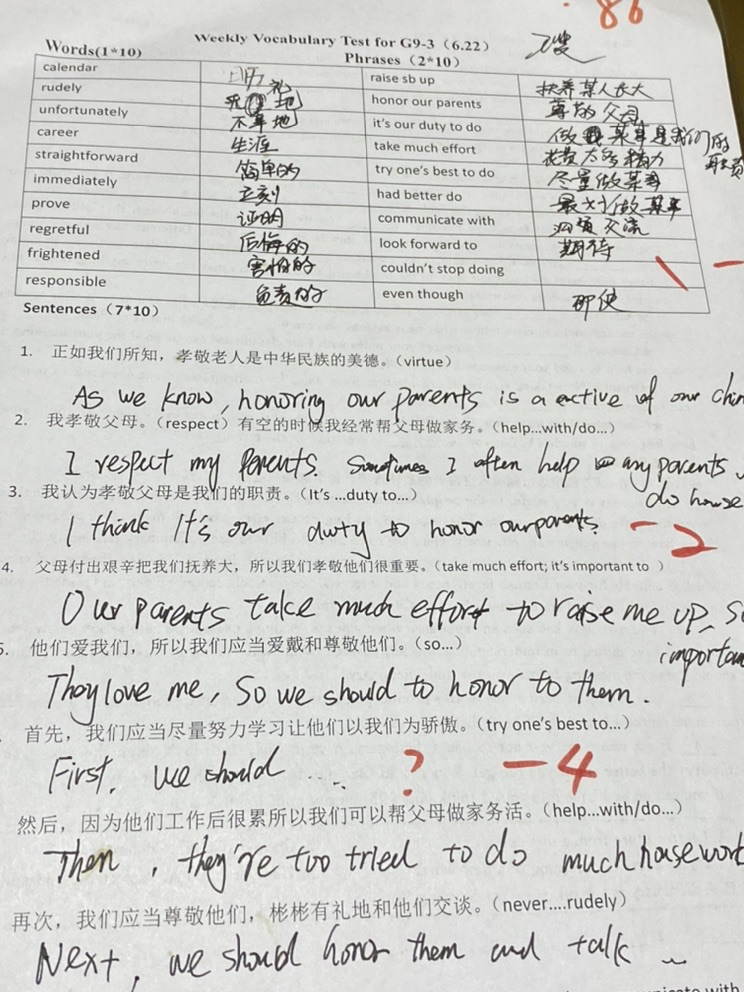 86
Weekly Vocabulary Test for G9-3（6.22）
Words(1*10) Phrases（2*10）
calendar 日历 raise sb up 扶养某人长大
rudely 无礼地 honor our parents 尊敬父母
unfortunately 不幸地 it's our duty to do 做某事是我们的职责
career 生涯 take much effort 花费太多精力
straightforward 简单的 try one's best to do 尽量做某事
immediately 立刻 had better do 最好做某事
prove 证明 communicate with 交流
regretful 后悔的 look forward to 期待
frightened 害怕的 couldn't stop doing
responsible 负责的 even though 即使
Sentences（7*10）
1. 正如我们所知，孝敬老人是中华民族的美德。（virtue）
As we know, honoring our parents is a of our
2. 我孝敬父母。（respect）有空的时候我经常帮父母做家务。（help...with/do...）
I respect my parents. Sometimes I often help my parents
do house
3. 我认为孝敬父母是我们的职责。（It's ...duty to...）
I think It's our duty to honor our parents. -2
4. 父母付出艰辛把我们抚养大，所以我们孝敬他们很重要。（take much effort; it's important to ）
Our parents take much effort to raise me up, so
important
5. 他们爱我们，所以我们应当爱戴和尊敬他们。（so...）
They love me, So we should to honor to them.
首先，我们应当尽量努力学习让他们以我们为骄傲。（try one's best to...）
First, we should .... ? -4
然后，因为他们工作后很累所以我们可以帮父母做家务活。（help...with/do...）
Then, they're too tried to do much housework
再次，我们应当尊敬他们，彬彬有礼地和他们交谈。（never....rudely）
Next, we should honor them and talk ..